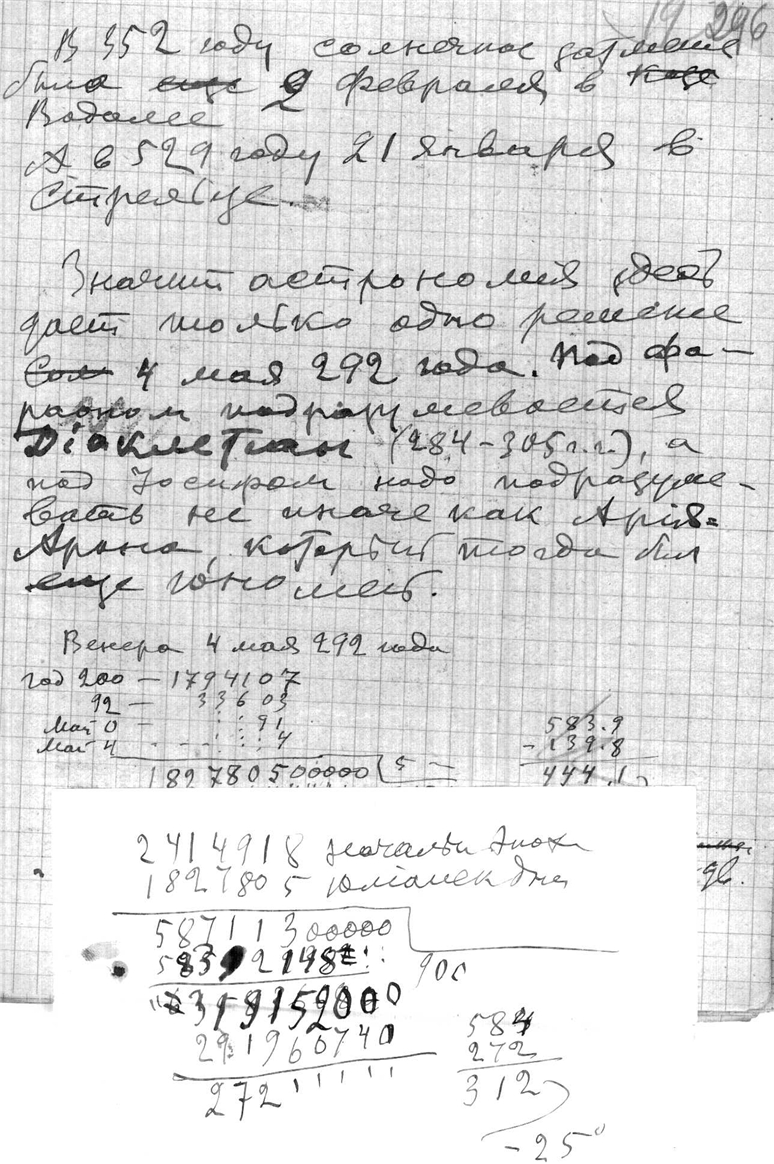 19 296
В 352 году солнечное затмение
было еще 2 февраля в
Водолее
А в 529 году 21 января в
Стрельце.
Значит астрономия здесь
дает только одно решение
4 мая 292 года. Под фа-
раоном подразумевается
Діоклетіан (284-305 г.г.), а
под Іосифом надо подразуме-
вать не иначе как Арія=
Арона, который тогда был
еще юношей.
Венера 4 мая 292 года
год 200 — 1794107
92 — 33603
Май 0 — 91
Май 4 4
182780500000 5 —
583.9
- 139.8
444.1
2414918 начало эпохи
1827805 юлианск дни
58711300000
900
272
584
272
312
-25°